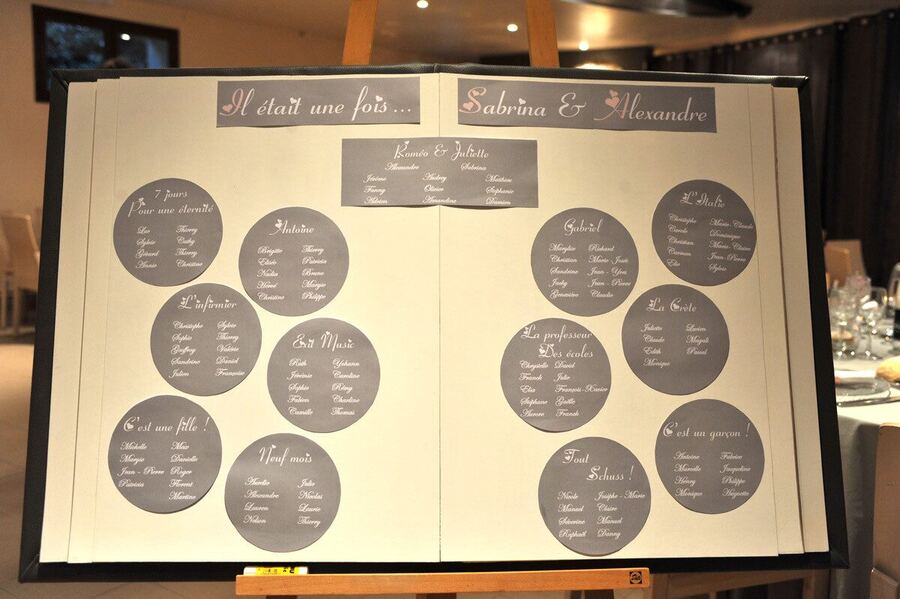 Il était une fois...
Sabrina & Alexandre
Roméo & Juliette
Alexandre Sabrina
Jérôme Audrey Matthieu
Fanny Olivier Stephanie
Adrien Amandine Damien
7 jours
Pour une éternité
Luc Thierry
Sylvie Cathy
Gérard Thierry
Annie Christine
Antoine
Brigitte Thierry
Patricia
Nadia Bruno
Hervé Margie
Christine Philippe
L'infirmier
Christophe Sylvie
Sophie Thierry
Geoffrey Valérie
Sandrine Daniel
Julien Françoise
Exit Music
Ruth Yohann
Jérémie Caroline
Sophie Rémy
Fabien Charline
Camille Thomas
C'est une fille !
Michelle Max
Margie Danielle
Jean - Pierre Roger
Patricia Florent
Martine
Neuf mois
Aurelie Julie
Alexandre Nicolas
Lauren Laurie
Nelson Thierry
Gabriel
Maryline Richard
Christian Marie - José
Sandrine Jean - Yves
Jacky Jean - Pierre
Geneviève Claudie
L'Italie
Christophe Marie - Claude
Carole Dominique
Christian Marie - Claire
Carmen Jean - Pierre
Elie Sylvie
La professeur
Des écoles
Chrystelle David
Franck Julie
Elsa François - Xavier
Stéphane Gaëlle
Aurore Franck
La Crète
Juliette Lucien
Claude Magali
Edith Pascal
Monique
Tout
Schuss !
Nicole Josèphe - Marie
Manuel Claire
Séverine Manuel
Raphaël Danny
C'est un garçon !
Antoine Fabrice
Marcelle Jacqueline
Henry Philippe
Monique Huguette